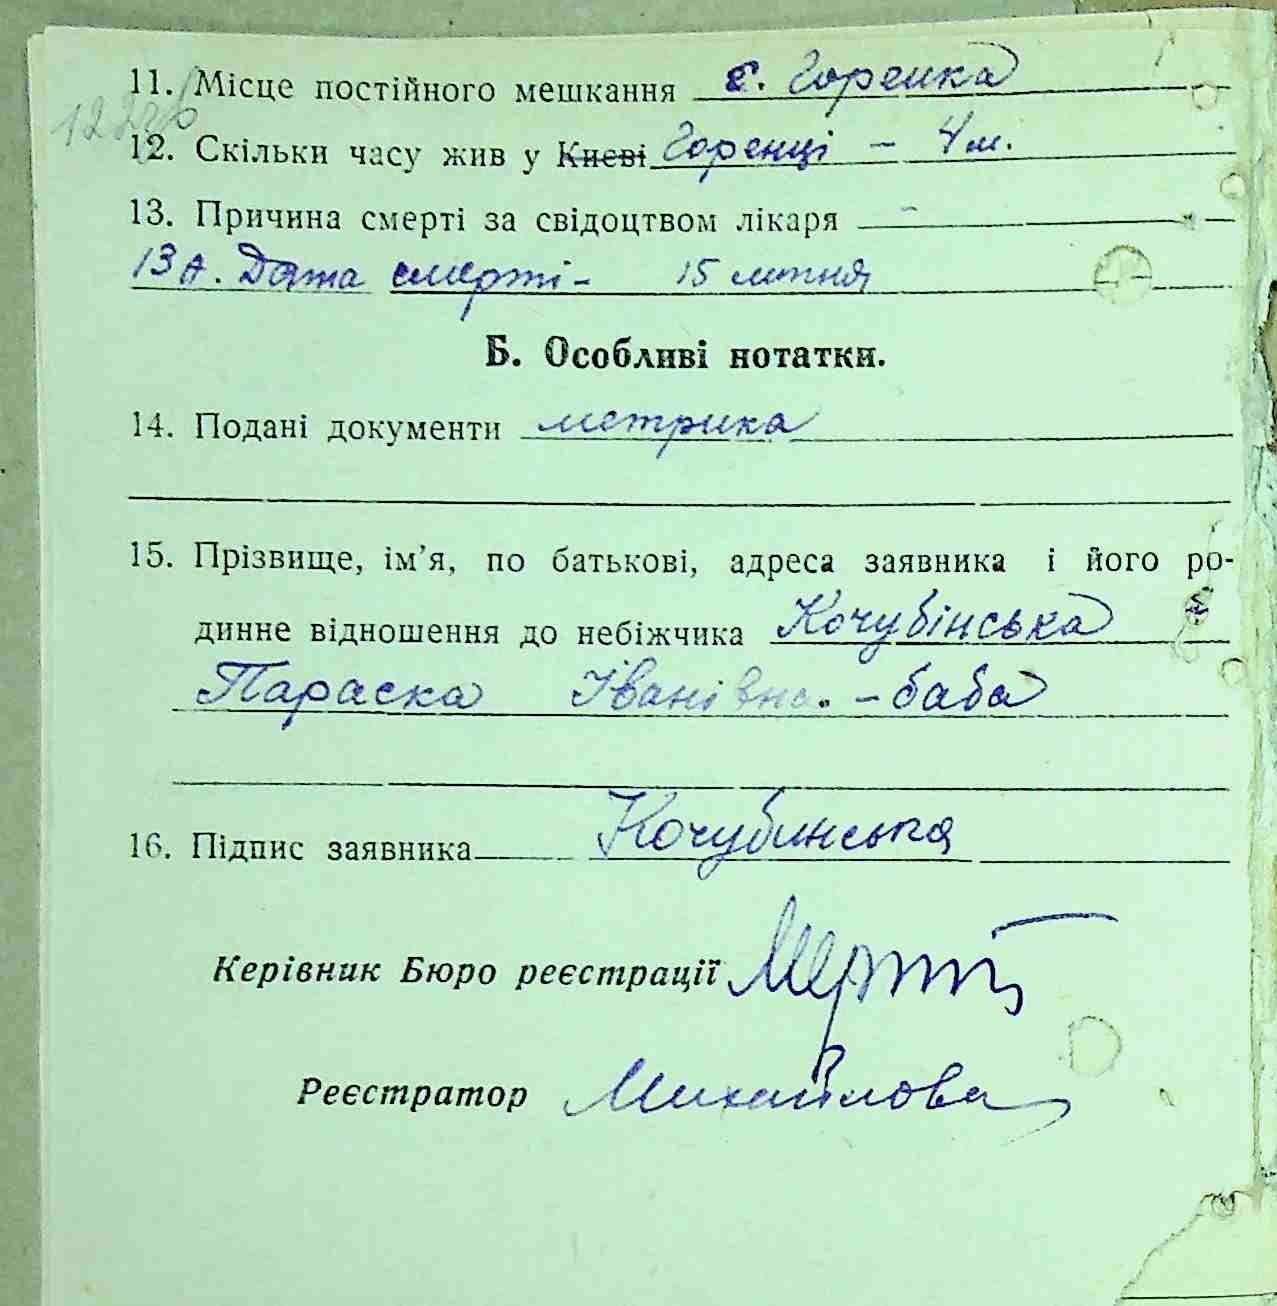 11. Місце постійного мешкання с. Горенка
12. Скільки часу жив у Києві Горенці – 4 м.
13. Причина смерті за свідоцтвом лікаря –
13 А. Дата смерті – 15 липня
Б. Особливі нотатки.
14. Подані документи метрика
15. Прізвище, ім’я, по батькові, адреса заявника і його ро-
динне відношення до небіжчика Кочубінська
Параска Іванівна. – баба
16. Підпис заявника Кочубинська
Керівник Бюро реєстрації
Реєстратор Михайлова